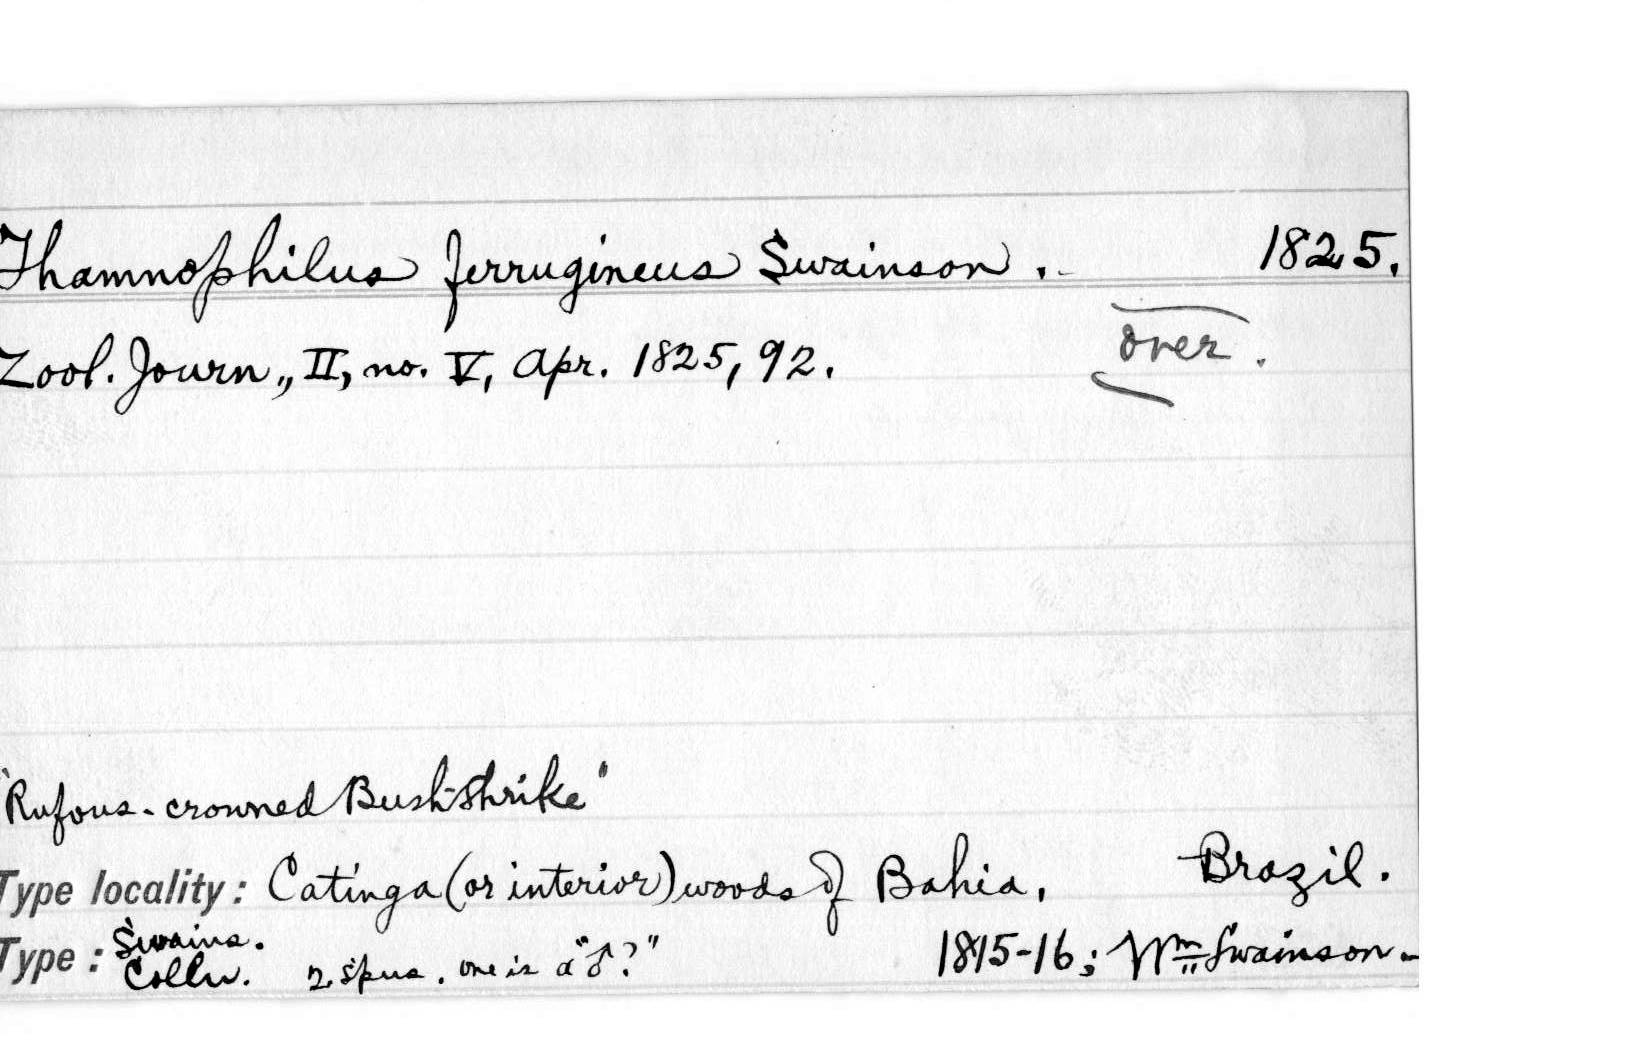 Thamnophilus ferrugineus Swainson. 1825.
Zool. Journ., II, no. V, Apr. 1825, 92.
over.
"Rufous-crowned Bush-Shrike"
Type locality: Catinga (or interior) woods of Bahia, Brazil.
Type: Swains. Colln. 2 spns. one is a "♂?" 1815-16; Wm Swainson-